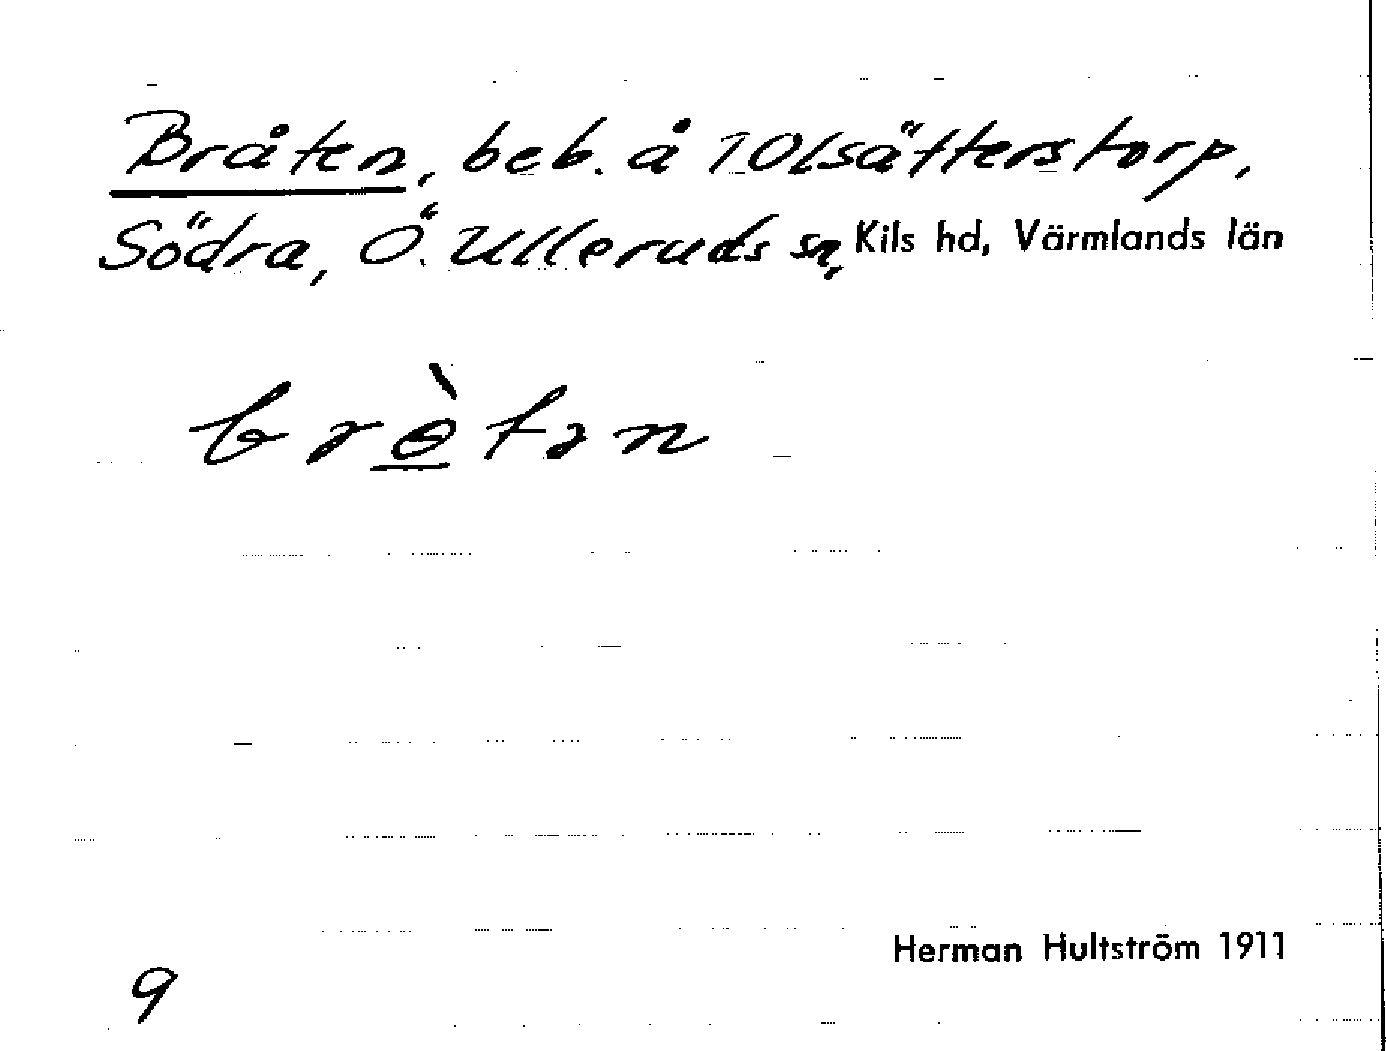 Bråten, beb. å 1 Olsätterstorp,
Södra, Ö. Ulleruds sn, Kils hd, Värmlands län
brètan
Herman Hultström 1911
9